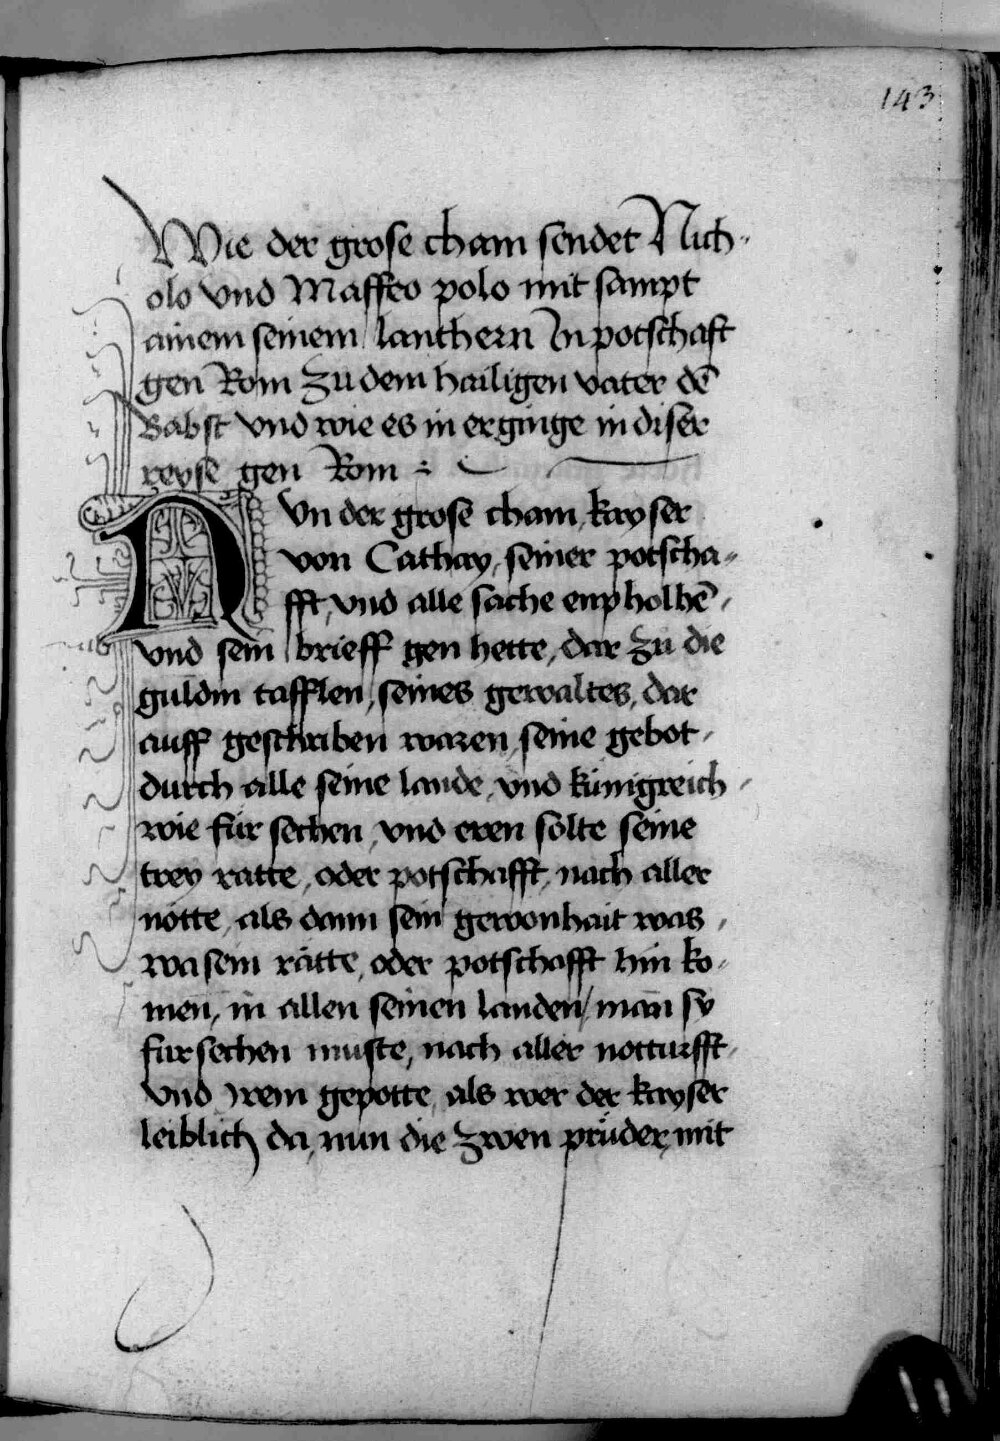 143
Wie der grose cham sendet Nich-
olo vnd Maffeo polo mit sampt
ainem seinem lanthern In potschaft
gen Rom zu dem hailigen vater dē
Babst vnd wie es in erginge in diser
reyse gen Rom :
NVn der grose cham, kayser
von Cathay, seiner potscha-
fft, vnd alle sache enpholhē,
vnd sein brieff gen hette, dar zu die
guldin tafflen, seines gewaltes, dar
auff geschriben waren, seine gebot,
durch alle seine lande, vnd künigreich,
wie für sechen, vnd eren solte seine
trey ratte, oder potschafft, nach aller
notte, als dann sein gewonhait was,
wa sein rätte, oder potschafft hin ko-
men, in allen seinen landen, man sy
fursechen muste, nach aller notturfft,
vnd irem gepotte, als wer der kayser
leiblich da, nun die zwen prüder, mit